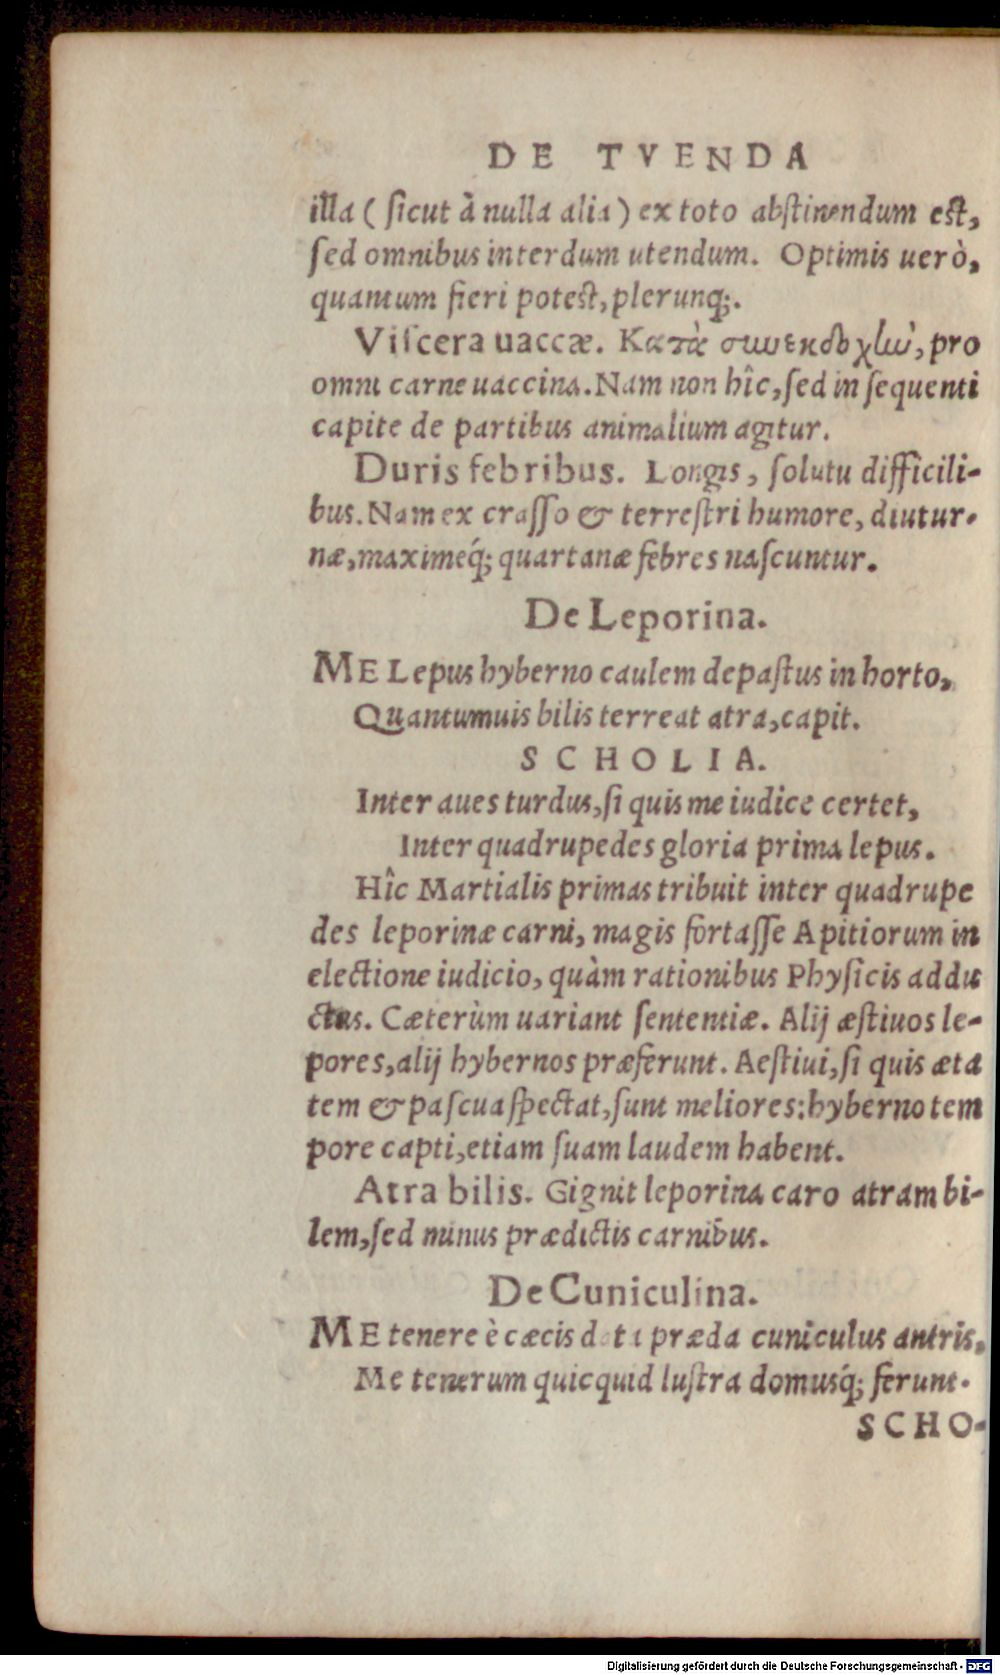 DE TVENDA
illa (ſicut à nulla alia) ex toto abſtinendum eſt,
ſed omnibus interdum utendum. Optimis uerò,
quantum fieri poteſt, plerunq;.
Viſcera uaccæ. Κατὰ συνεκδοχlὼ, pro
omni carne uaccina. Nam non hîc, ſed in ſequenti
capite de partibus animalium agitur.
Duris febribus. Longis, ſolutu difficili-
bus. Nam ex craſſo & terreſtri humore, diutur-
næ, maximeq́; quartanæ febres naſcuntur.
De Leporina.
ME Lepus hyberno caulem depaſtus in horto,
Quantumuis bilis terreat atra, capit.
SCHOLIA.
Inter aues turdus, ſi quis me iudice certet,
Inter quadrupedes gloria prima lepus.
Hîc Martialis primas tribuit inter quadrupe
des leporinæ carni, magis fortaſſe Apitiorum in
electione iudicio, quàm rationibus Phyſicis addu
ctus. Cæterùm uariant ſententiæ. Alij æſtiuos le-
pores, alij hybernos præferunt. Aeſtiui, ſi quis æta
tem & paſcua ſpectat, ſunt meliores: hyberno tem
pore capti, etiam ſuam laudem habent.
Atra bilis. Gignit leporina caro atram bi-
lem, ſed minus prædictis carnibus.
De Cuniculina.
ME tenere è cæcis data præda cuniculus antris,
Me tenerum quicquid luſtra domusq́; ferunt.
SCHO-
Digitalisierung gefördert durch die Deutsche Forschungsgemeinschaft - DFG